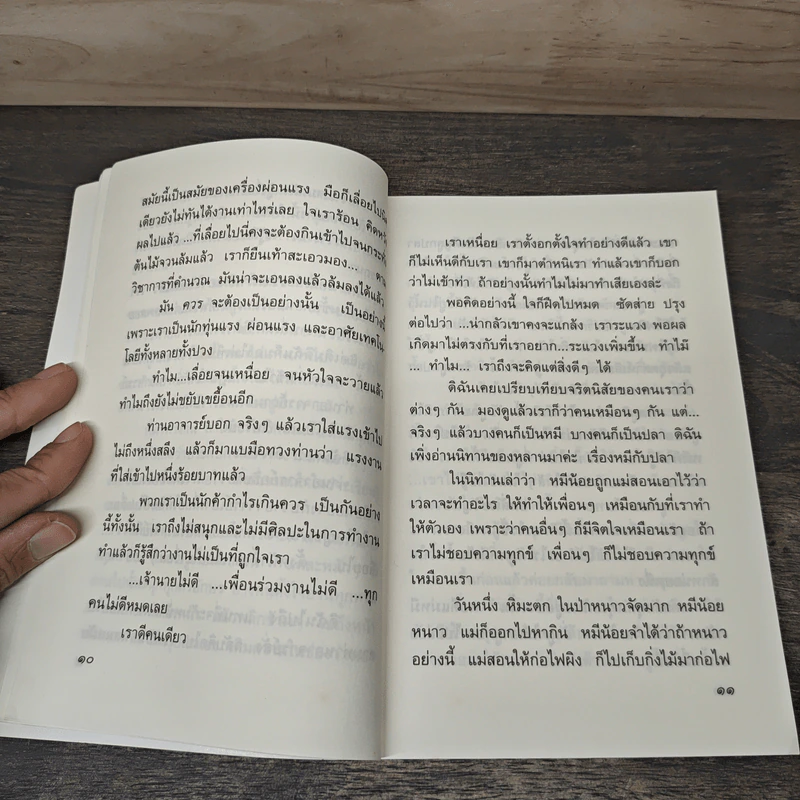 สมัยนี้เป็นสมัยของเครื่องผ่อนแรง มือก็เลื่อยไปนิด
เดียวยังไม่ทันได้งานเท่าไหร่เลย ใจเราร้อน คิดหวัง
ผลไปแล้ว ...ที่เลื่อยไปนี่คงจะต้องกินเข้าไปจนกระทั่ง
ต้นไม้จวนล้มแล้ว เราก็ยืนเท้าสะเอวมอง... ตาม
วิชาการที่คำนวณ มันน่าจะเอนลงแล้วล้มลงได้แล้ว
มัน ควร จะต้องเป็นอย่างนั้น เป็นอย่างนี้
เพราะเราเป็นนักทุ่นแรง ผ่อนแรง และอาศัยเทคโน
โลยีทั้งหลายทั้งปวง
ทำไม...เลื่อยจนเหนื่อย จนหัวใจจะวายแล้ว
ทำไมถึงยังไม่ขยับเขยื้อนอีก
ท่านอาจารย์บอก จริงๆ แล้วเราใส่แรงเข้าไป
ไม่ถึงหนึ่งสลึง แล้วก็มาแบมือทวงท่านว่า แรงงาน
ที่ใส่เข้าไปหนึ่งร้อยบาทแล้ว
พวกเราเป็นนักค้ากำไรเกินควร เป็นกันอย่าง
นี้ทั้งนั้น เราถึงไม่สนุกและไม่มีศิลปะในการทำงาน
ทำแล้วก็รู้สึกว่างานไม่เป็นที่ถูกใจเรา
...เจ้านายไม่ดี ...เพื่อนร่วมงานไม่ดี ...ทุก
คนไม่ดีหมดเลย
เราดีคนเดียว
๑๐
เราเหนื่อย เราตั้งอกตั้งใจทำอย่างดีแล้ว เขา
ก็ไม่เห็นดีกับเรา เขาก็มาตำหนิเรา ทำแล้วเขาก็บอก
ว่าไม่เข้าท่า ถ้าอย่างนั้นทำไมไม่มาทำเสียเองล่ะ
พอคิดอย่างนี้ ใจก็ฝืดไปหมด ซัดส่าย ปรุง
ต่อไปว่า ...น่ากลัวเขาคงจะแกล้ง เราระแวง พอผล
เกิดมาไม่ตรงกับที่เราอยาก...ระแวงเพิ่มขึ้น ทำไม้
... ทำไม... เราถึงจะคิดแต่สิ่งดีๆ ได้
ดิฉันเคยเปรียบเทียบจริตนิสัยของคนเราว่า
ต่างๆ กัน มองดูแล้วเราก็ว่าคนเหมือนๆ กัน แต่...
จริงๆ แล้วบางคนก็เป็นหมี บางคนก็เป็นปลา ดิฉัน
เพิ่งอ่านนิทานของหลานมาค่ะ เรื่องหมีกับปลา
ในนิทานเล่าว่า หมีน้อยถูกแม่สอนเอาไว้ว่า
เวลาจะทำอะไร ให้ทำให้เพื่อนๆ เหมือนกับที่เราทำ
ให้ตัวเอง เพราะว่าคนอื่นๆ ก็มีจิตใจเหมือนเรา ถ้า
เราไม่ชอบความทุกข์ เพื่อนๆ ก็ไม่ชอบความทุกข์
เหมือนเรา
วันหนึ่ง หิมะตก ในป่าหนาวจัดมาก หมีน้อย
หนาว แม่ก็ออกไปหากิน หมีน้อยจำได้ว่าถ้าหนาว
อย่างนี้ แม่สอนให้ก่อไฟผิง ก็ไปเก็บกิ่งไม้มาก่อไฟ
๑๑